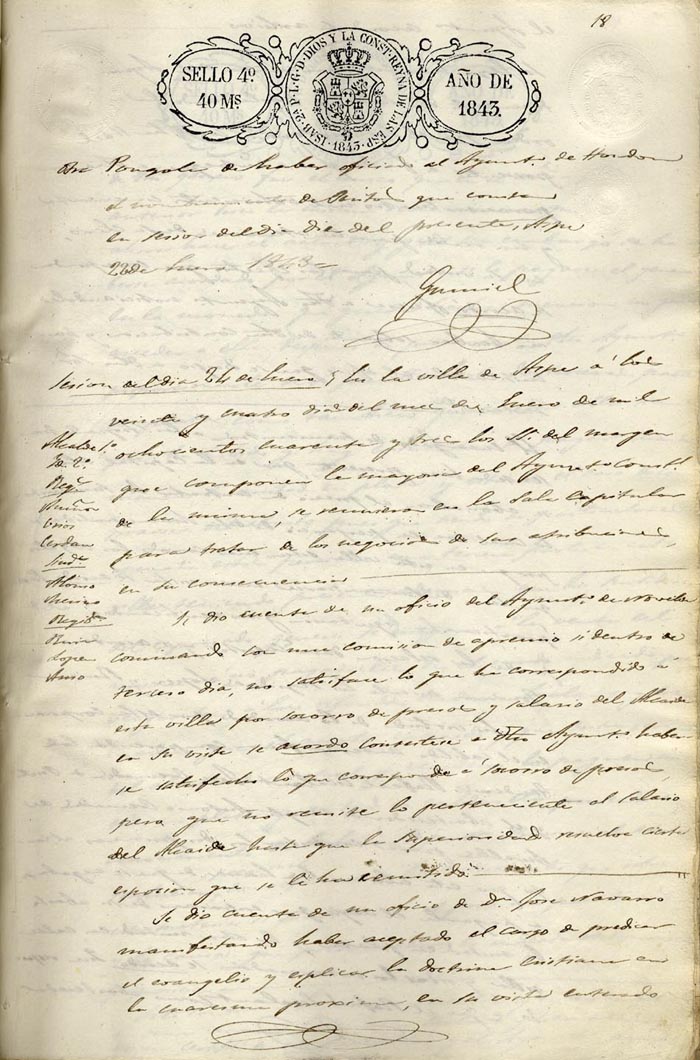 18
SELLO 4º
40 Ms
ISAB. 2ª P. L. G. D. DIOS Y LA CONST. REYNA DE LAS ESP. 1843.
AÑO DE
1843.
de haber oficiado al Ayuntº de Hondon
el nombramiento de Perito que consta
en sesion del dia diez del presente, Aspe
22 de Enero 1843
Gumiel
Sesion del dia 24 de Enero En la villa de Aspe á los
veinte y cuatro dias del mes de Enero de mil
ochocientos cuarenta y tres los Sres del margen
que componen la mayoria del Ayuntº Constl
de la misma, se reunieron en la Sala Capitular
para tratar de los negocios de sus atribuciones,
en su consecuencia
Alcalde 1º
Id. 2º
Regs
Muñoz
Cerdan
Sinds
Alonso
Regids
Lopez
Se dio cuenta de un oficio del Ayuntº de Novelda
conminando con una comision de apremio si dentro de
tercero dia, no satisface lo que ha correspondido á
esta villa por socorro de presos y salario del Alcaide
en su vista se acordo contestar a dho Ayuntº haber
se satisfecho lo que corresponde á socorro de presos,
pero que no remite lo perteneciente al salario
del Alcaide hasta que la Superioridad resuelva cierta
esposicion que se le ha remitido
Se dio cuenta de un oficio de Dn Jose Navarro
manifestando haber aceptado el cargo de predicar
el evangelio y esplicar la doctrina cristiana en
la cuaresma proxima, en su vista enterado